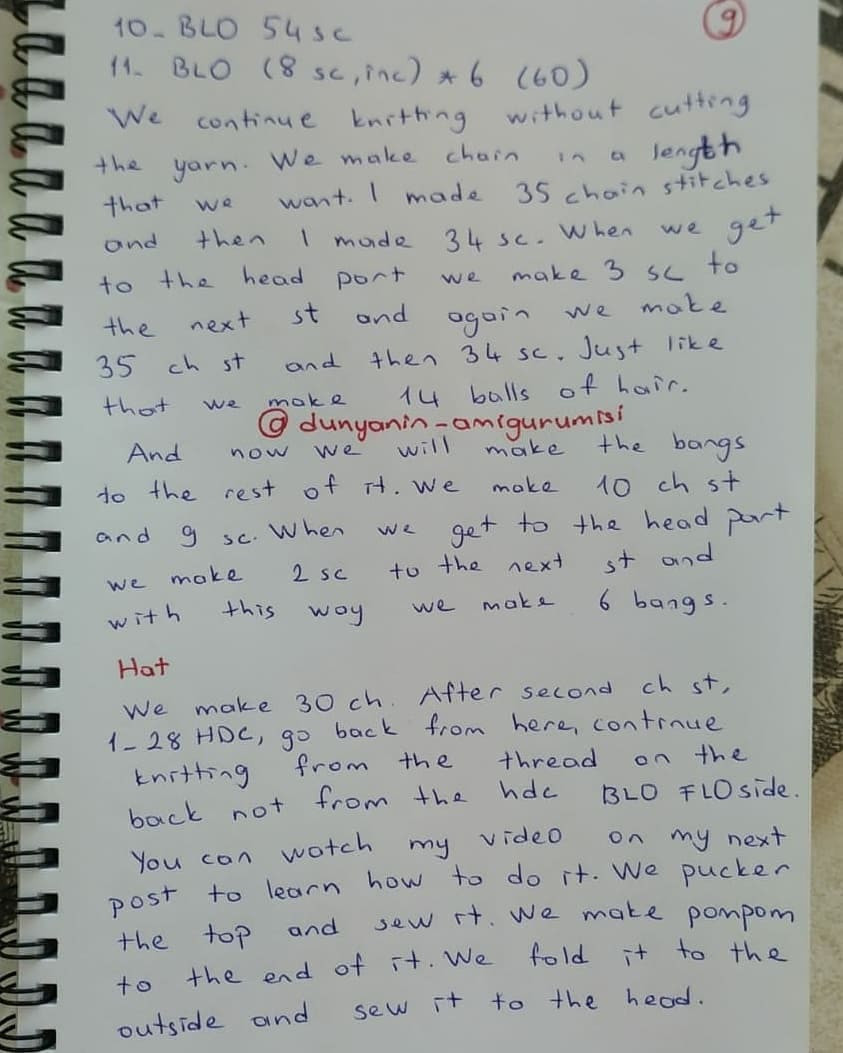 9
10- BLO 54 sc
11- BLO (8 sc, inc) * 6 (60)
We continue knitting without cutting
the yarn. We make chain in a length
that we want. I made 35 chain stitches
and then I made 34 sc. When we get
to the head part we make 3 sc to
the next st and again we make
35 ch st and then 34 sc. Just like
that we make 14 balls of hair.
@dunyanin-amigurumisi
And now we will make the bangs
to the rest of it. We make 10 ch st
and 9 sc. When we get to the head part
we make 2 sc to the next st and
with this way we make 6 bangs.
Hat
We make 30 ch. After second ch st,
1- 28 HDC, go back from here, continue
knitting from the thread on the
back not from the hdc BLO FLO side.
You can watch my video on my next
post to learn how to do it. We pucker
the top and sew it. We make pompom
to the end of it. We fold it to the
outside and sew it to the head.